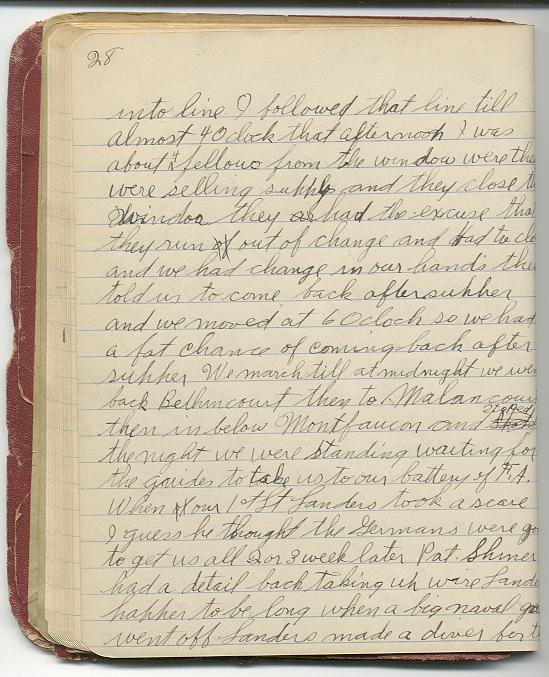 28
into line I followed that line till
almost 4 Oclock that afternoon I was
about 4 fellows from the window were the
were selling supply and they close t
Window they as had the excuse tha
they run of out of change and had to clo
and we had change in our hands the
told us to come back after supper
and we moved at 6 Oclock so we had
a fat chance of coming back after
supper We march till at midnight we wen
back Bethincourt then to Malancour
staped
then in below Montfaucon and
the night we were standing waiting for
the guides to take us to our battery of F.A.
When our 1st Lt Sanders took a scare
I guess he thought the Germans were go
to get us all 2 or 3 week later Pat. Shiner
had a detail back taking up wire Sande
happer to be long when a big naval gu
went off Sanders made a diver for t